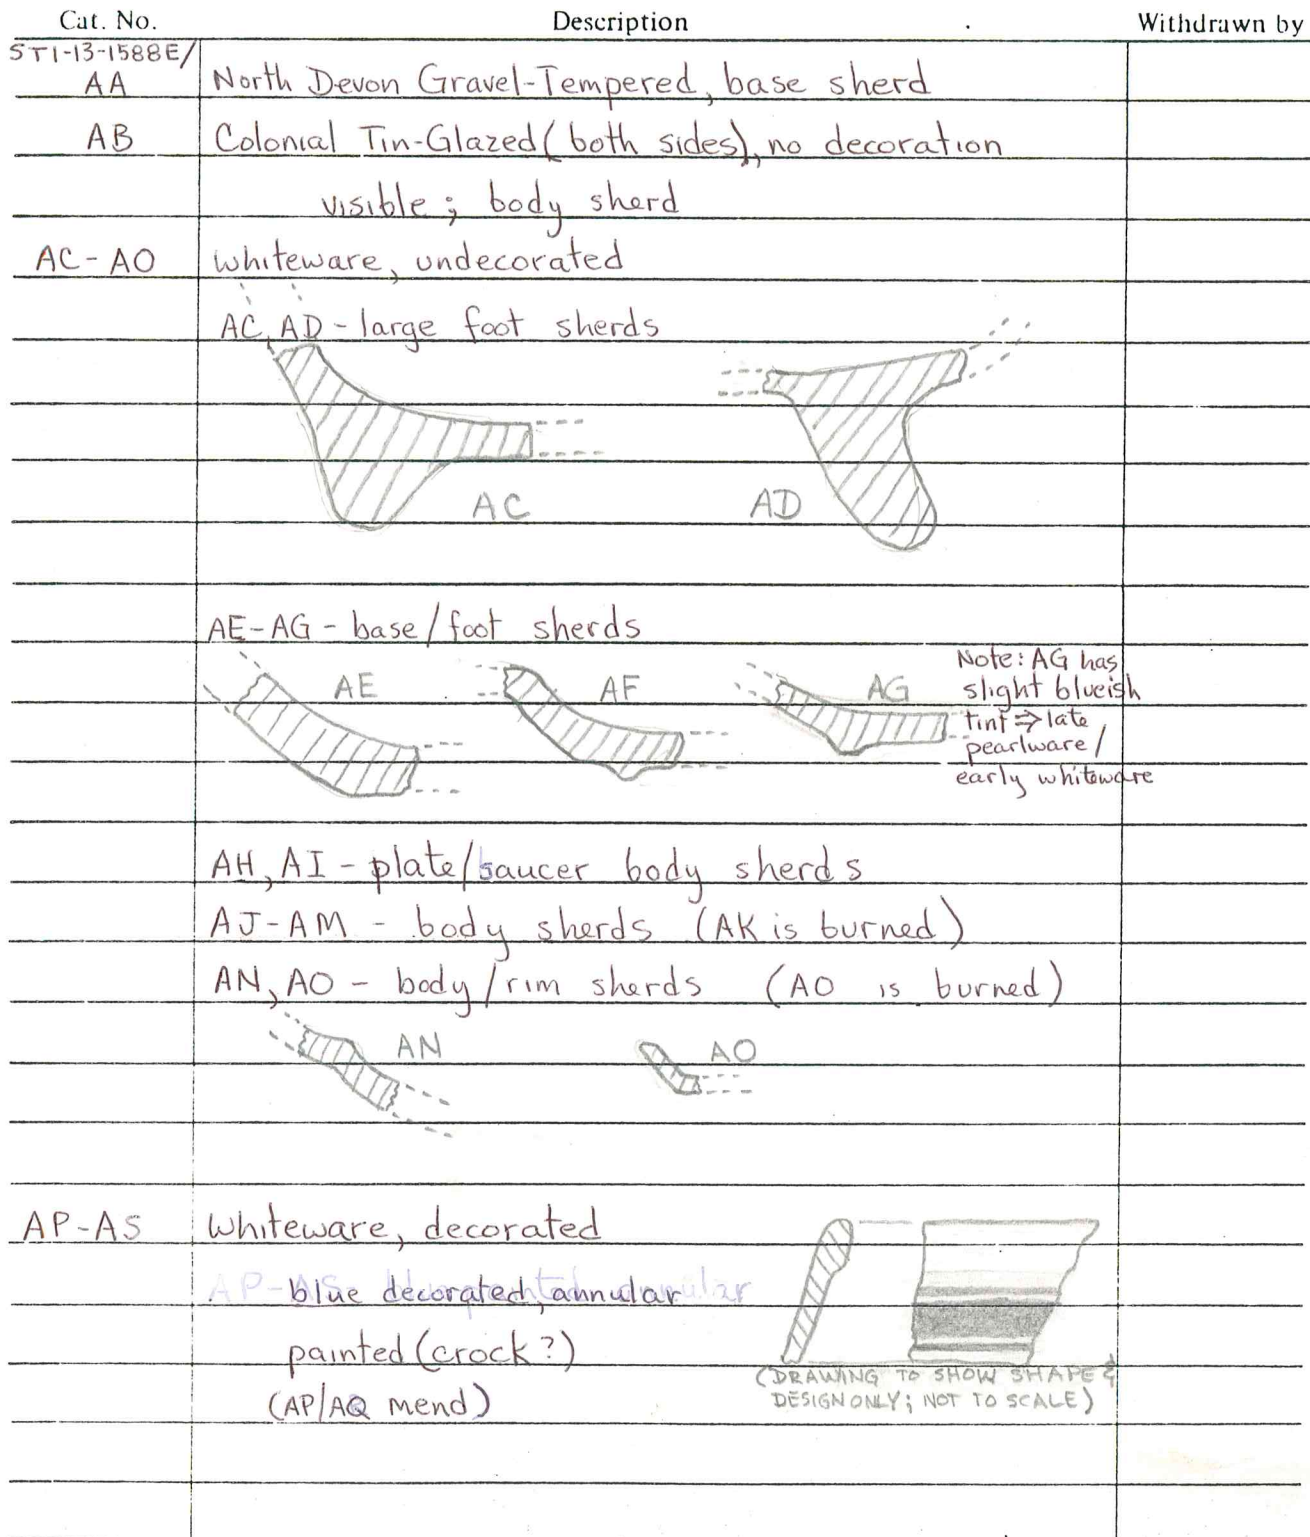 Cat. No. Description Withdrawn by
ST1-13-1588E/
AA North Devon Gravel-Tempered, base sherd
AB Colonial Tin-Glazed (both sides), no decoration
visible; body sherd
AC-AO whiteware, undecorated
AC, AD - large foot sherds
AC AD
AE-AG - base/foot sherds
AE AF AG
Note: AG has
slight blueish
tint ⇒ late
pearlware/
early whiteware
AH, AI - plate/saucer body sherds
AJ-AM - body sherds (AK is burned)
AN, AO - body/rim sherds (AO is burned)
AN AO
AP-AS Whiteware, decorated
blue decorated, annular
painted (crock?)
(AP/AQ mend)
(DRAWING TO SHOW SHAPE &
DESIGN ONLY; NOT TO SCALE)